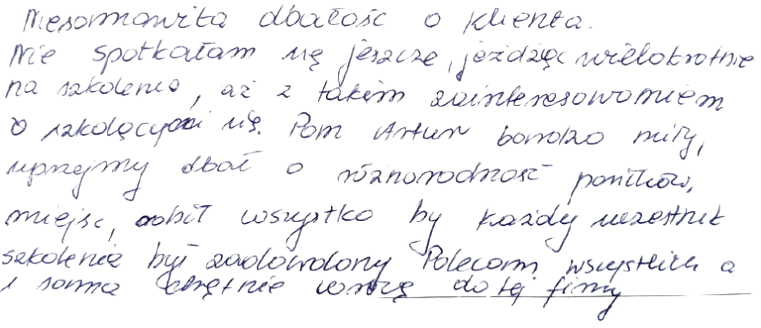 Niesamowita dbałość o klienta.
Nie spotkałam się jeszcze, jeżdżąc wielokrotnie
na szkolenia, aż z takim zainteresowaniem
o szkolących się. Pan Artur bardzo miły,
uprzejmy dbał o różnorodność posiłków,
miejsc, robił wszystko by każdy uczestnik
szkolenia był zadowolony Polecam wszystkich a
i sama chętnie wrócę do tej firmy